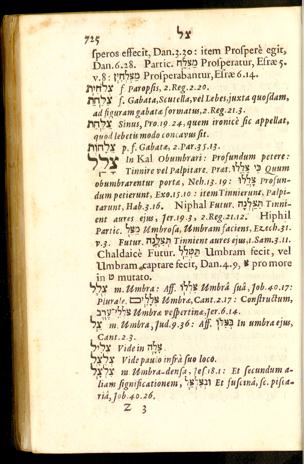 725 צל
speros effecit, Dan.3.30: item Prosperè egit,
Dan.6.28. Partic. מַצְלַח Prosperatur, Esræ 5.
v.8: מַצְלְחִין Prosperabantur, Esræ 6.14.
צְלֹחִית f Paropsis, 2.Reg.2.20.
צַלַּחַת f. Gabata, Scutella, vel Lebes, juxta quosdam,
ad figuram gabatæ formatus, 2.Reg.21.3.
צַלַּחַת Sinus, Pro.19.24, quem ironicè sic appellat,
quod lebetis modo concavus sit.
צֵלָחוֹת p. f. Gabatæ, 2.Par.35.13.
צָלַל In Kal Obumbrari: Profundum petere:
Tinnire vel Palpitare. Præt. צָלֲלוּ כִּי Quum
obumbrarentur portæ, Neh.13.19: צָלֲלוּ Profun-
dum petierunt, Exo.15.10: item Tinnierunt, Palpi-
tarunt, Hab.3.16. Niphal Futur. תִּצַּלְנָה Tinni-
ent aures ejus, Jer.19.3, 2.Reg.21.12. Hiphil
Partic. מֵצַל Umbrosa, Umbram faciens, Ezech.31.
v.3. Futur. תְּצִלֶּינָה Tinnient aures ejus, 1.Sam.3.11.
Chaldaicè Futur. תַּטְלֵל Umbram fecit, vel
Umbram captare fecit, Dan.4.9, צ pro more
in ט mutato.
צֵלֶל m. Umbra: Aff. צִלֲלוֹ Umbrâ suâ, Job.40.17:
Plurale. צְלָלִים Umbræ, Cant.2.17: Constructum,
צִלְלֵי־עָרֶב Umbræ vespertinæ, Jer.6.4.
צֵל m. Umbra, Jud.9.36: Aff. בְּצִלּוֹ In umbra ejus,
Cant.2.3.
צְלִיל Vide in צָלָה
צְלָצַל Vide paulo infrà suo loco.
צִלְצַל m Umbra densa, Jes.18.1: Et secundum a-
liam significationem, וּבְצִלְצַל Et fuscinâ, sc. pisca-
riâ, Job.40.26.
Z 3